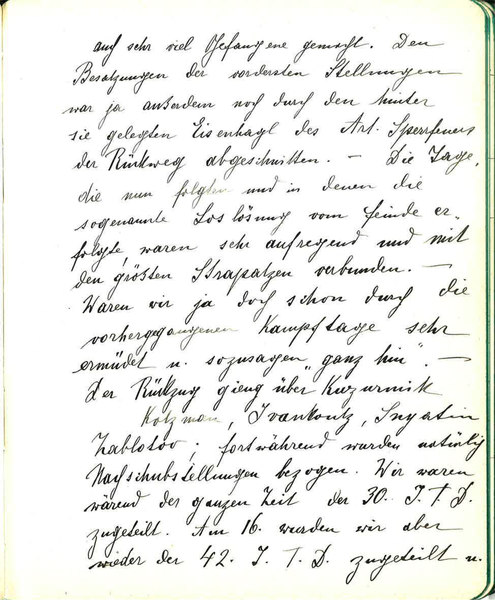 auch sehr viel Gefangene gemacht. Den
Besatzungen der vordersten Stellungen
war ja außerdem noch durch den hinter
sie gelegten Eisenhagl des Art. Sperrfeuers
der Rückweg abgeschnitten. — Die Tage,
die nun folgten und in denen die
sogenannte Loslösung vom Feinde er-
folgte, waren sehr aufregend und mit
den größten Strapatzen verbunden. —
Waren wir ja doch schon durch die
vorhergegangenen Kampftage sehr
ermüdet u. sozusagen „ganz hin". —
Der Rückzug gieng über Kuzurmik
Kotzman, Ivankoutz, Snyatin
Zablotov; fortwährend wurden natürlig
Nachschubstellungen bezogen. Wir waren
wärend der ganzen Zeit der 30. I. T. D.
zugeteilt. Am 16. wurden wir aber
wieder der 42. I. T. D. zugeteilt u.